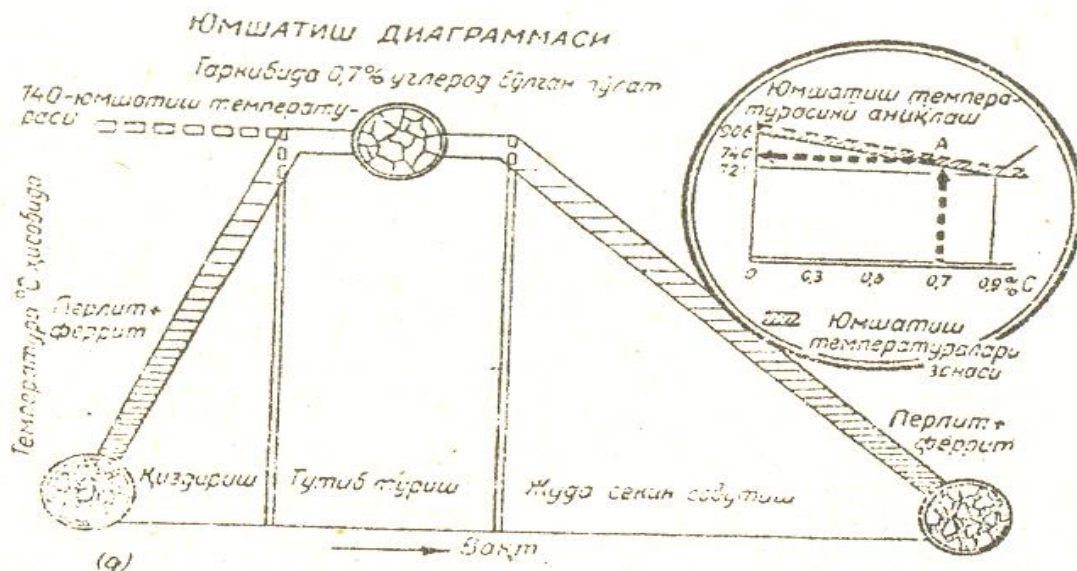 ЮМШАТИШ ДИАГРАММАСИ
Таркибида 0,7% углерод бўлган пўлат
740-юмшатиш температу-
раси
Температура °C ҳисобида
Перлит+
феррит
Қиздириш
Тутиб туриш
Жуда секин совутиш
Вақт
(а)
Перлит+
феррит
Юмшатиш темпера-
турасини аниқлаш
906
740
721
А
0 0,3 0,6 0,7 0,9 % C
Юмшатиш
температуралари
зонаси